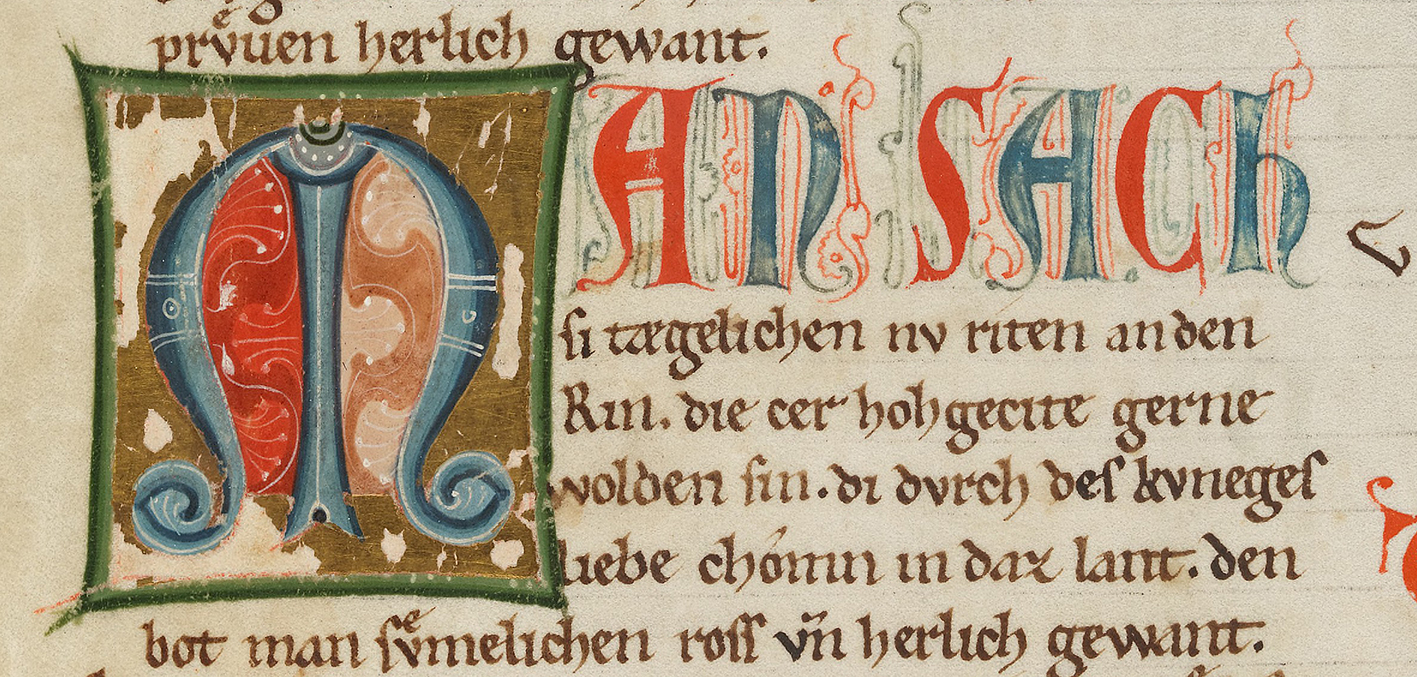 prv̊uen herlich gewant.
MAN SACH
ſi tægelichen nv riten an den
Rin. die cer hohgecite gerne
wolden ſin. di dvrch deſ kvnegeſ
liebe chomn in daz lant. den
bot man ſvͤmelichen roſſ vn̄ herlich gewant.